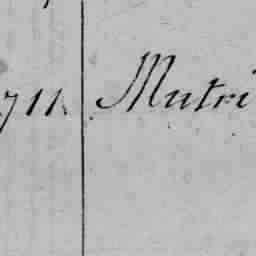 711. Mutri